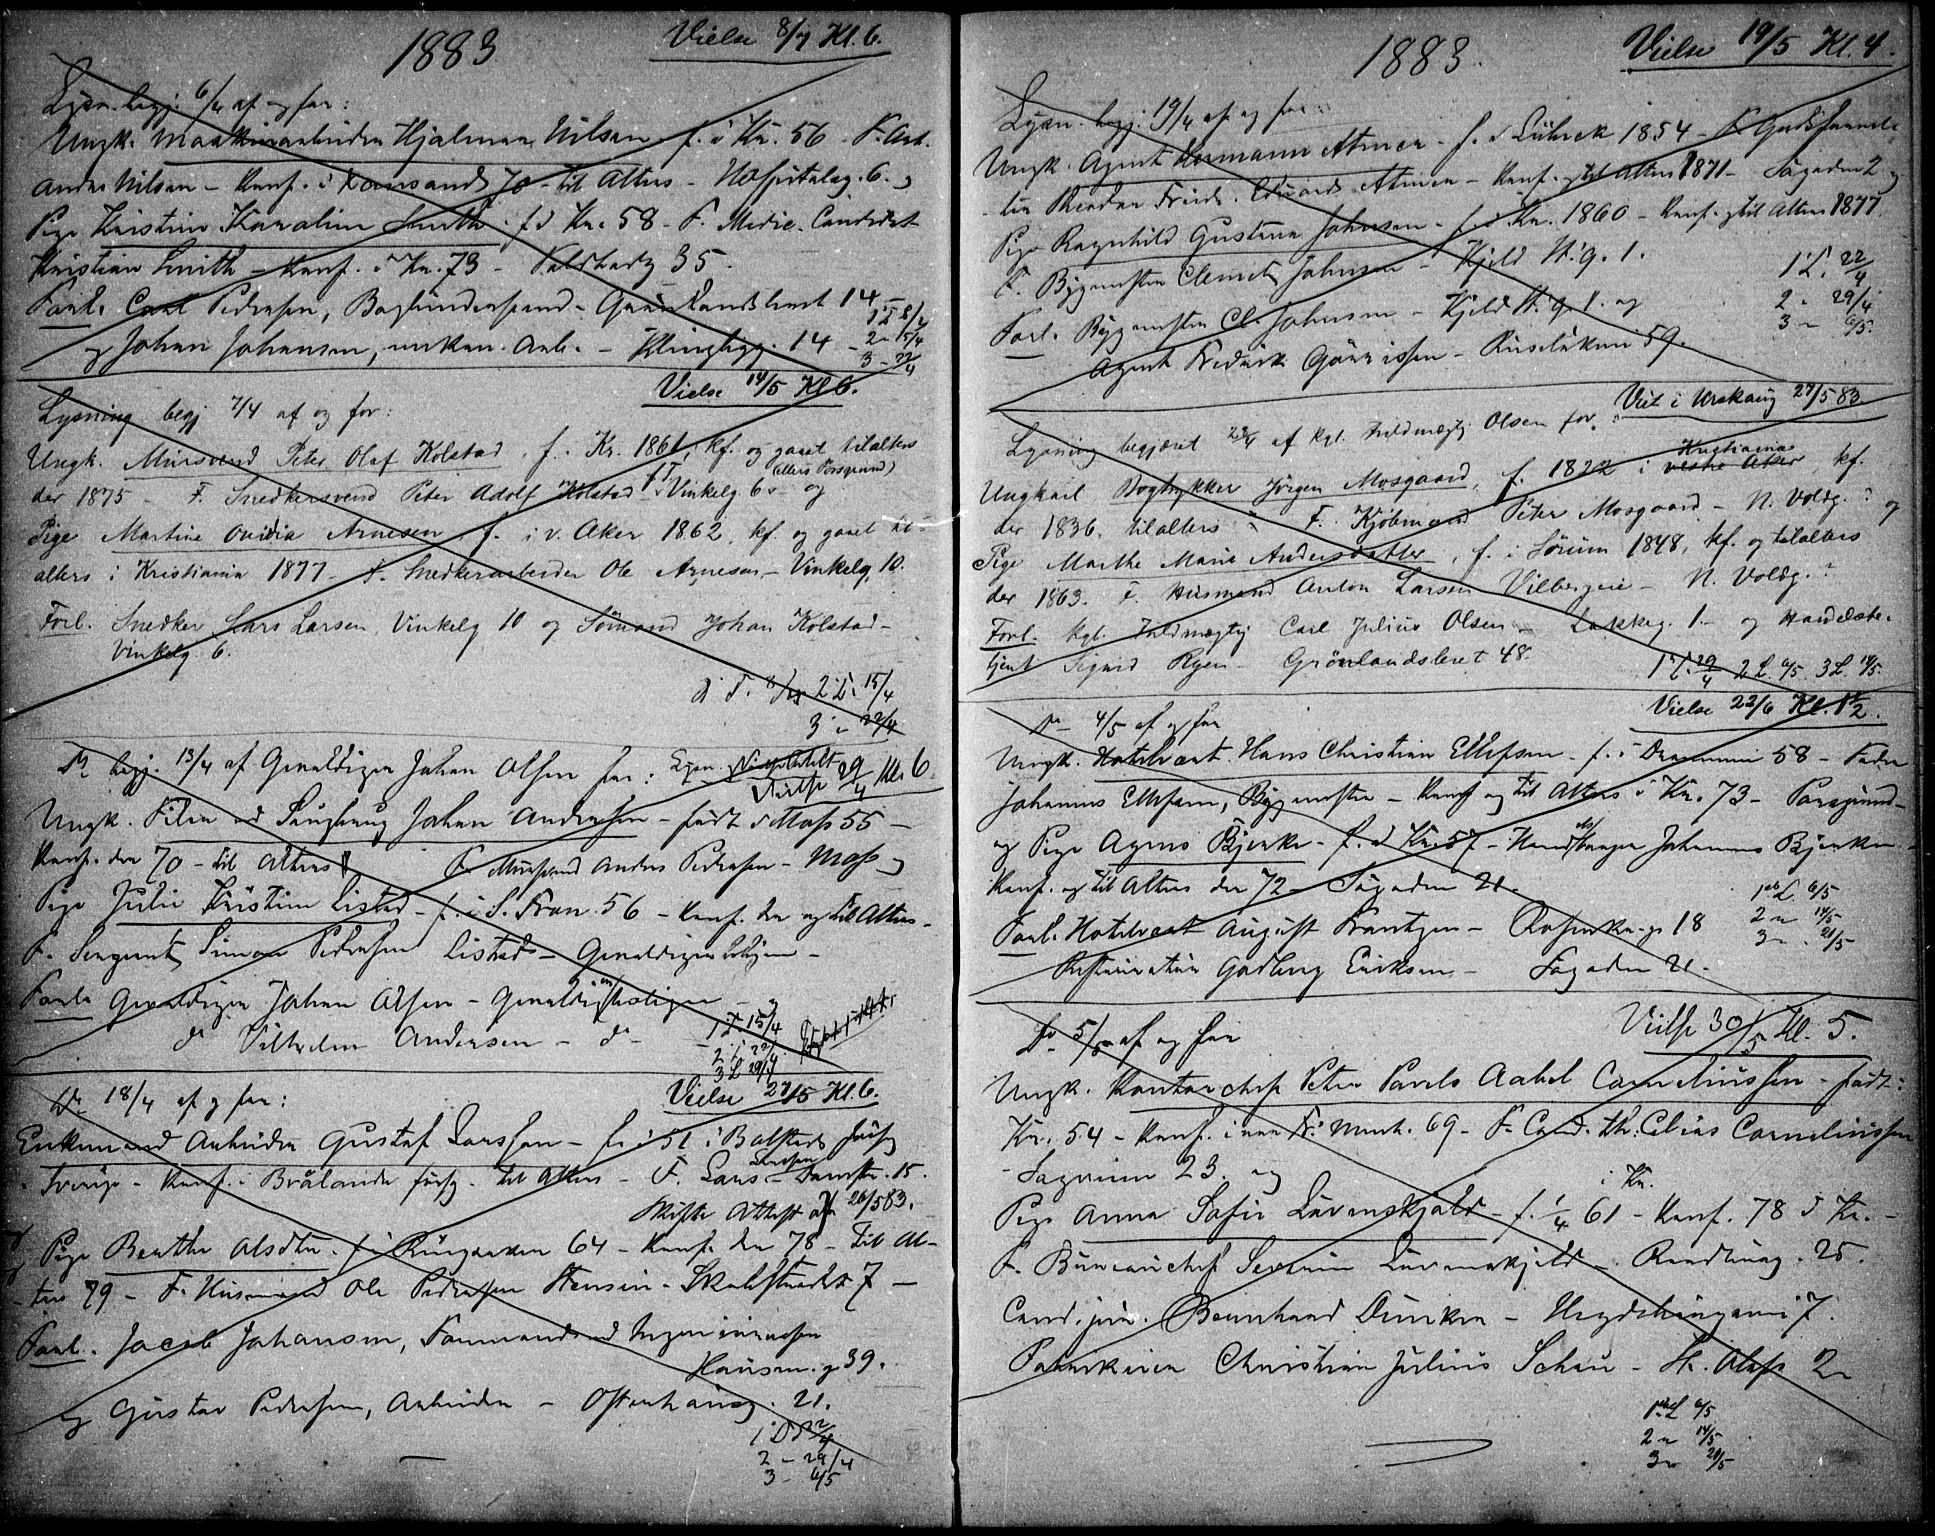 1883
Vielse 8/7 Kl. 6.
Lysn. begj. 6/4 af og for:
Ungk. Maskinarbeider Hjalmar Nilsen f. i Kr. 56 - F. Arb.
Anders Nilsen - Konf. i 70 - til Alters - Hospitalsg. 6. og
Pige Kristine Karoline Smith f. i Kr. 58 - F. Medic. Candidat
Kristian Smith - Konf. i Kr. 73 - 35.
Forl. Carl Pedersen, - Grønlandsleret 14
og Johan Johansen, Arb. - Klingbgg. 14
1 L 8/4
2 - 15/4
3 - 22/4
Vielse 14/5 Kl 6.
Lysning begj 7/4 af og for:
Ungk. Mursvend Peter Olaf Kolstad, f. i Kr. 1861, kf. og gaaet tilalters
der 1875 - F. Snedkersvend Peter Adolf Kolstad Vinkelg. 6 - og
Pige Martine Ovidia Arnesen f. i v. Aker 1862, kf. og gaaet til
alters i Kristiania 1877 - F. Snedkerarbeider Ole Arnesen - Vinkelg. 10.
Forl. Snedker Lars Larsen, Vinkelg 10 og Sømand Johan Kolstad -
Vinkelg 6.
8/4 2 L. 15/4
3 - 22/4
Do begj. 13/4 af Gevaldiger Johan Olsen for:
Vielse 29/4 Kl. 6
Ungk. Filer Johan Andersen - født i Moss 55 -
Konf. der 70 - til Alters F. Mursvend Anders Pedersen - Moss og
Pige Julie Kristine Listad - f. i S. Fron 56 - Konf. der og til Alters -
F. Sergeant Simon Pedersen Listad - Gevaldigerboligen -
Forl. Gevaldiger Johan Olsen - Gevaldigerboligen - og
do Vilhelm Andersen - do -
1 L. 15/4
2 L 22/4
3 L 29/4
Do 18/4 af og for:
Vielse 27/5 Kl. 6.
Enkemand Arbeider Gustaf Larssen - f. i 51 i Bolstads försg
i Sverige - Konf. i Brålanda försg. til Alters - F. Lars Larssen - 15.
Skifte Attest af 26/5 83.
og Pige Berthe Olsdtr. f. i Ringsaker 64 - Konf. der 78 - til Al-
ters 79 - F. Husmand Ole Pedersen Stensin - 7 -
Forl. Jacob Johansen, Formand
Hausm. g 39.
og Gustav Pedersen, Arbeider - Osterhausg. 21.
1 L 22/4
2 - 29/4
3 - 6/5
1883.
Vielse 19/5 Kl. 4.
Lysn. begj. 19/4 af og for:
Ungk. Agent Hermann Atmer - f. i Lübeck 1854 - F. Godsforval-
ter Friedr. Eduard Atmer - Konf. og til Alters 1871 - Søgaden 2 og
Pige Ragnhild Gustava Johnsen - f. i Kr. 1860 - Konf. og til Alters 1877.
F. Bygmester Clemet Johnsen - Kjeld St. g. 1.
Forl. Bygmester Cl. Johnsen - Kjeld St. g. 1. og
Agent Fredrik Görrissen - Ruseløkvei 59.
1 L. 22/4
2 - 29/4
3 - 6/5.
Viet i Urskoug 27/5 83
Lysning begjæret 23/4 af kgl. Fuldmægtig Olsen for:
Ungkarl Bogtrykker Jörgen Mosgaard, f. 1822 i vestre Aker Kristiania kf.
der 1836. tilalters F. Kjöbmand Peter Mosgaard - N. Voldg. ? og
Pige Marthe Marie Andersdatter, f. i Sörum 1848, kf. og tilalters
der 1863. F. Husmand Anton Larsen Vilbergeie - N. Voldg. ?
Forl. Kgl. Fuldmægtig Carl Julius Olsen - Lakkeg. 1. - og Handelsbe-
tjent Sigurd Ryen - Grönlandsleret 48.
1 L. 29/4 2 L. 6/5 3 L 14/5.
Vielse 23/6 Kl. 1½.
Do 4/5 af og for
Ungk. Hotelvært Hans Christian Ellefsen - f. i Drammen 58 - Fader
Johannes Ellefsen, Bygmester - Konf og til Alters i Kr. 73 - Porsgrund -
og Pige Agnes Bjerke - f. i Kr. 57 - Johannes Bjerke -
Konf. og til Alters der 72 - Søgaden 21.
Forl. Hotelvært August Frantzen - Rosenkr. g. 18
Restauratør Godberg Eriksen - Søgaden 21.
1 L 6/5
2 - 14/5
3 - 21/5
Do 5/5 af og for
Vielse 30/5 Kl. 5.
Ungk. Kontorchef Peter Pavels Aabel Corneliussen - født i
Kr. 54 - Konf. i 69 - F. Cand. th. Corneliussen
- 23. og
Pige Anna Sofie Løvenskjold - f. 1/4 61 i Kr. - Konf. 78 i Kr. -
F. Bureauchef Severin Løvenskjold - 25.
Cand. jur. Bernhard Dunker - Hegdehaugsvei 7.
Fabrikeier Christian Julius Schou - St. Olafs 2
1 L 6/5
2 - 14/5
3 - 20/5